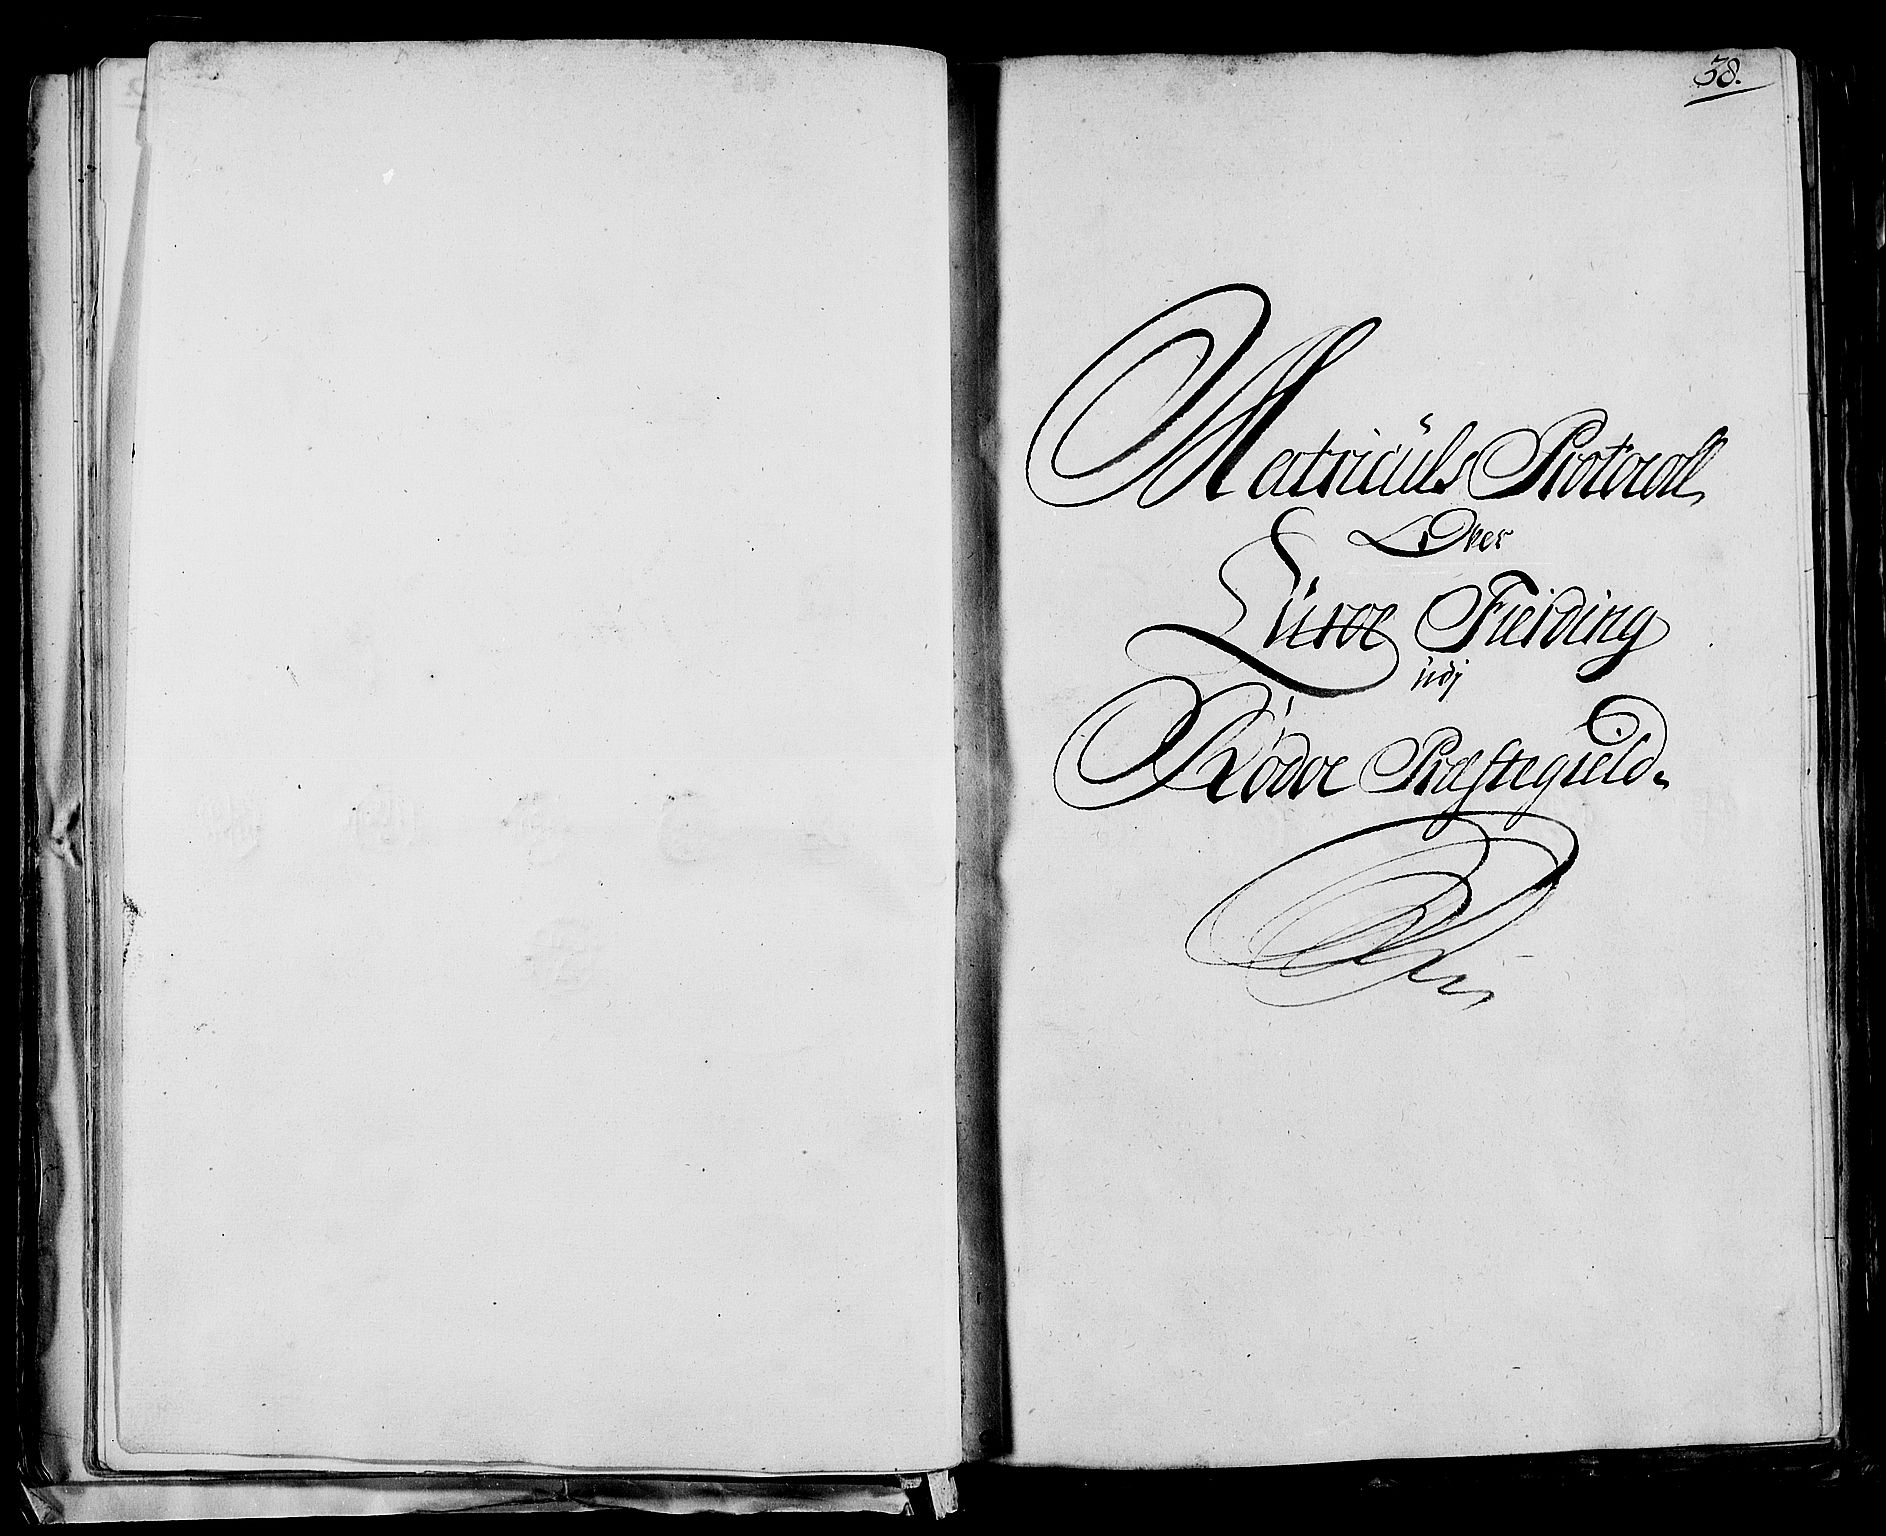 38.
Matriculs Protocoll
Over
Luroe Fierding
udj
Rödöe Præstegield